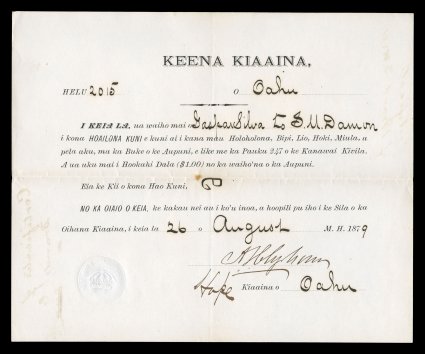 KEENA KIAAINA,
HELU 2015 o Oahu
I KEIA LA, ua waiho mai i Gaspar Silva to S. M. Damon
i kona HOAILONA KUNI e kuni ai i kana mau Holoholona, Bipi, Lio, Hoki, Miula, a
pela aku, ma ka Buke o ke Aupuni, e like me ka Pauku 247 o ke Kanawai Kivila.
A ua uku mai i Hookahi Dala ($1.00) no ka waiho'na o ka Aupuni.
Eia ke Kii o kona Hao Kuni,
NO KA OIAIO O KEIA, ke kakau nei au i ko'u inoa, a hoopili pu iho i ke Sila o ka
Oihana Kiaaina, i keia la 26 o August M. H. 1879
Kiaaina o Oahu